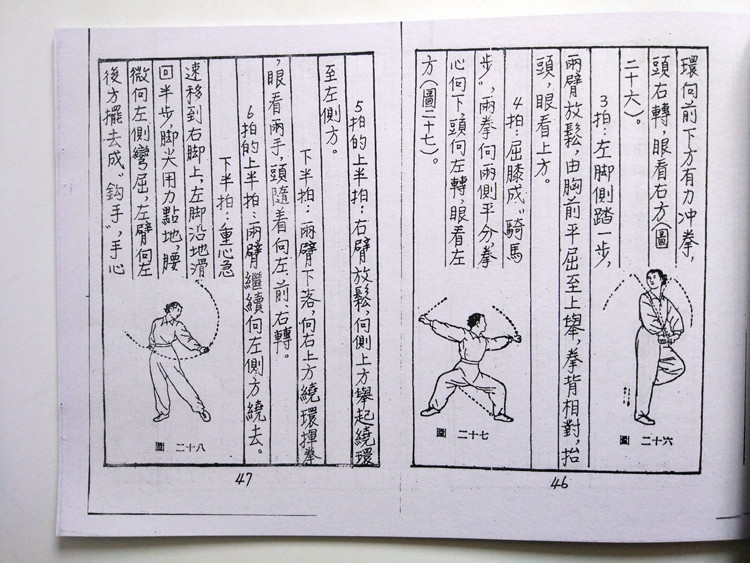 環向前下方有力冲拳，
頭右轉，眼看右方（圖
二十六）。
3拍：左脚側踏一步，
兩臂放鬆，由胸前平屈至上舉，拳背相對，抬
頭，眼看上方。
4拍：屈膝成“騎馬
步”，兩拳向兩側平分，拳
心向下，頭向左轉，眼看左
方（圖二十七）。
圖 二十六
圖 二十七
46
5拍的上半拍：右臂放鬆，向側上方舉起繞環
至左側方。
下半拍：兩臂下落，向右上方繞環揮拳
，眼看兩手，頭隨着向左、前、右轉。
6拍的上半拍：兩臂繼續向左側方繞去。
下半拍：重心急
速移到右脚上，左脚沿地滑
回半步，脚尖用力點地，腰
微向左側彎屈，左臂向左
後方擺去成“鈎手”，手心
圖 二十八
47